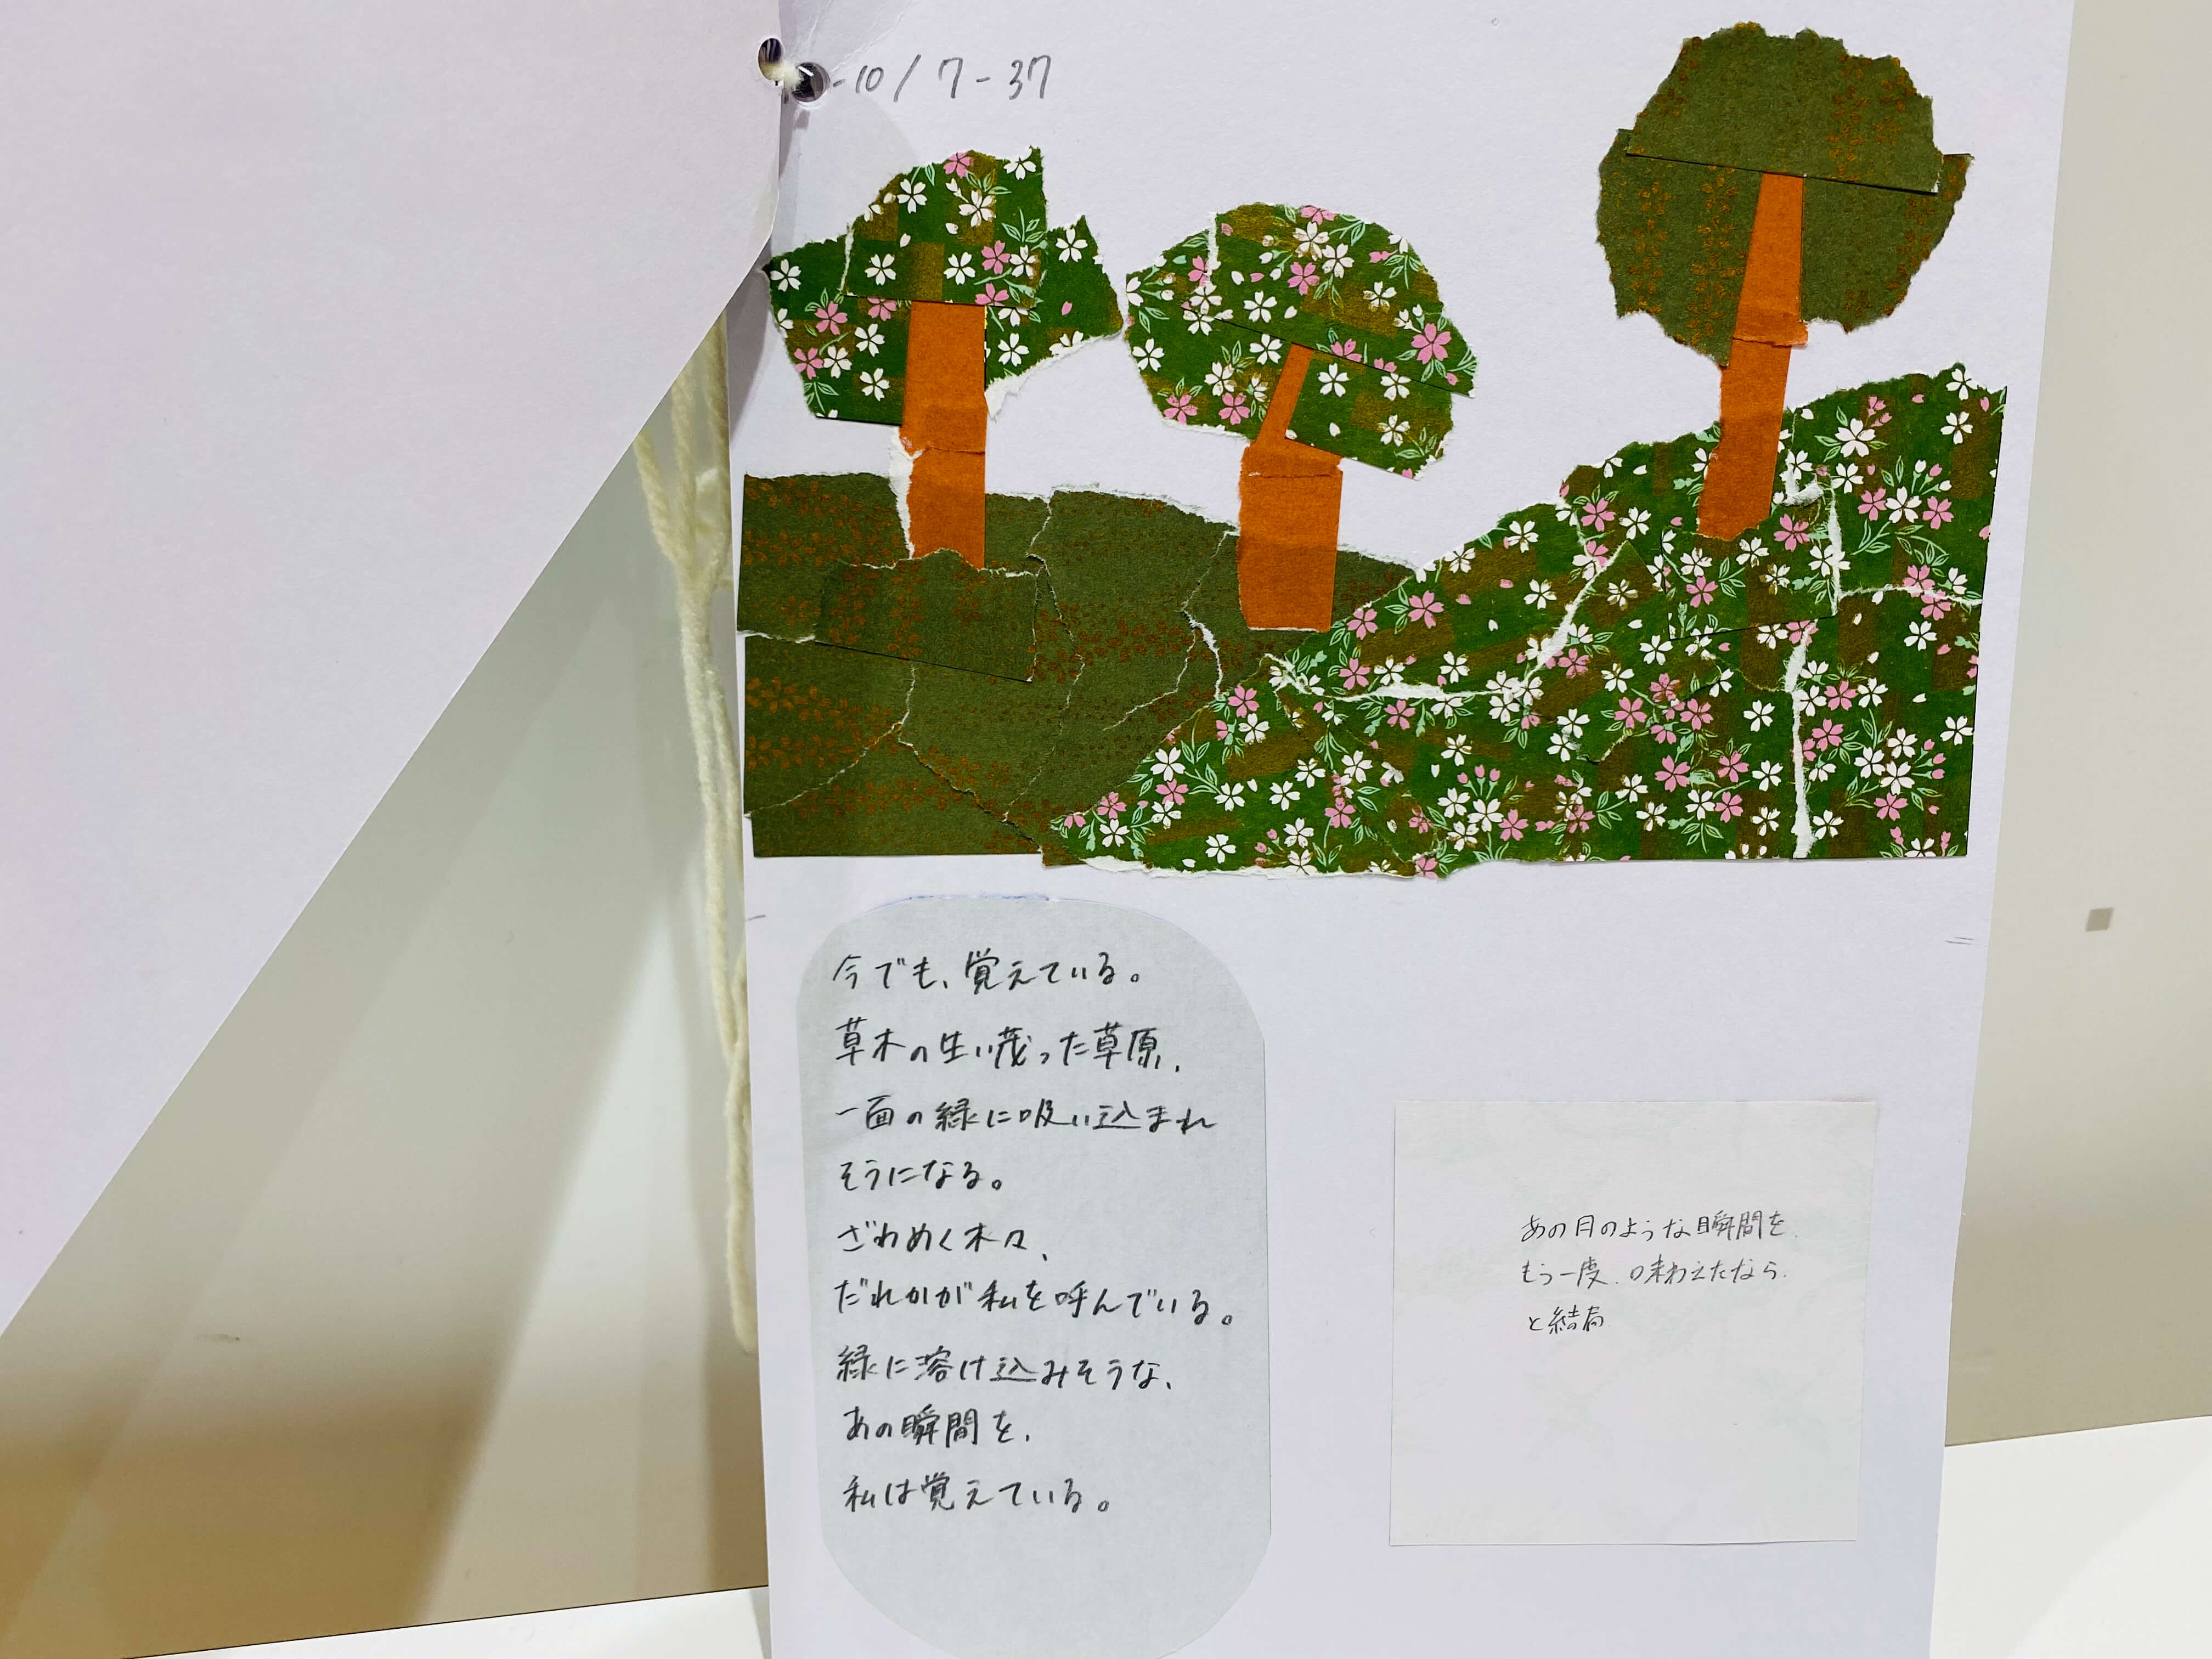 -10/7-37
今でも、覚えている。
草木の生い茂った草原、
一面の緑に吸い込まれ
そうになる。
ざわめく木々、
だれかが私を呼んでいる。
緑に溶け込みそうな、
あの瞬間を、
私は覚えている。
あの月のような瞬間を、
もう一度、味わえたなら、
と結局